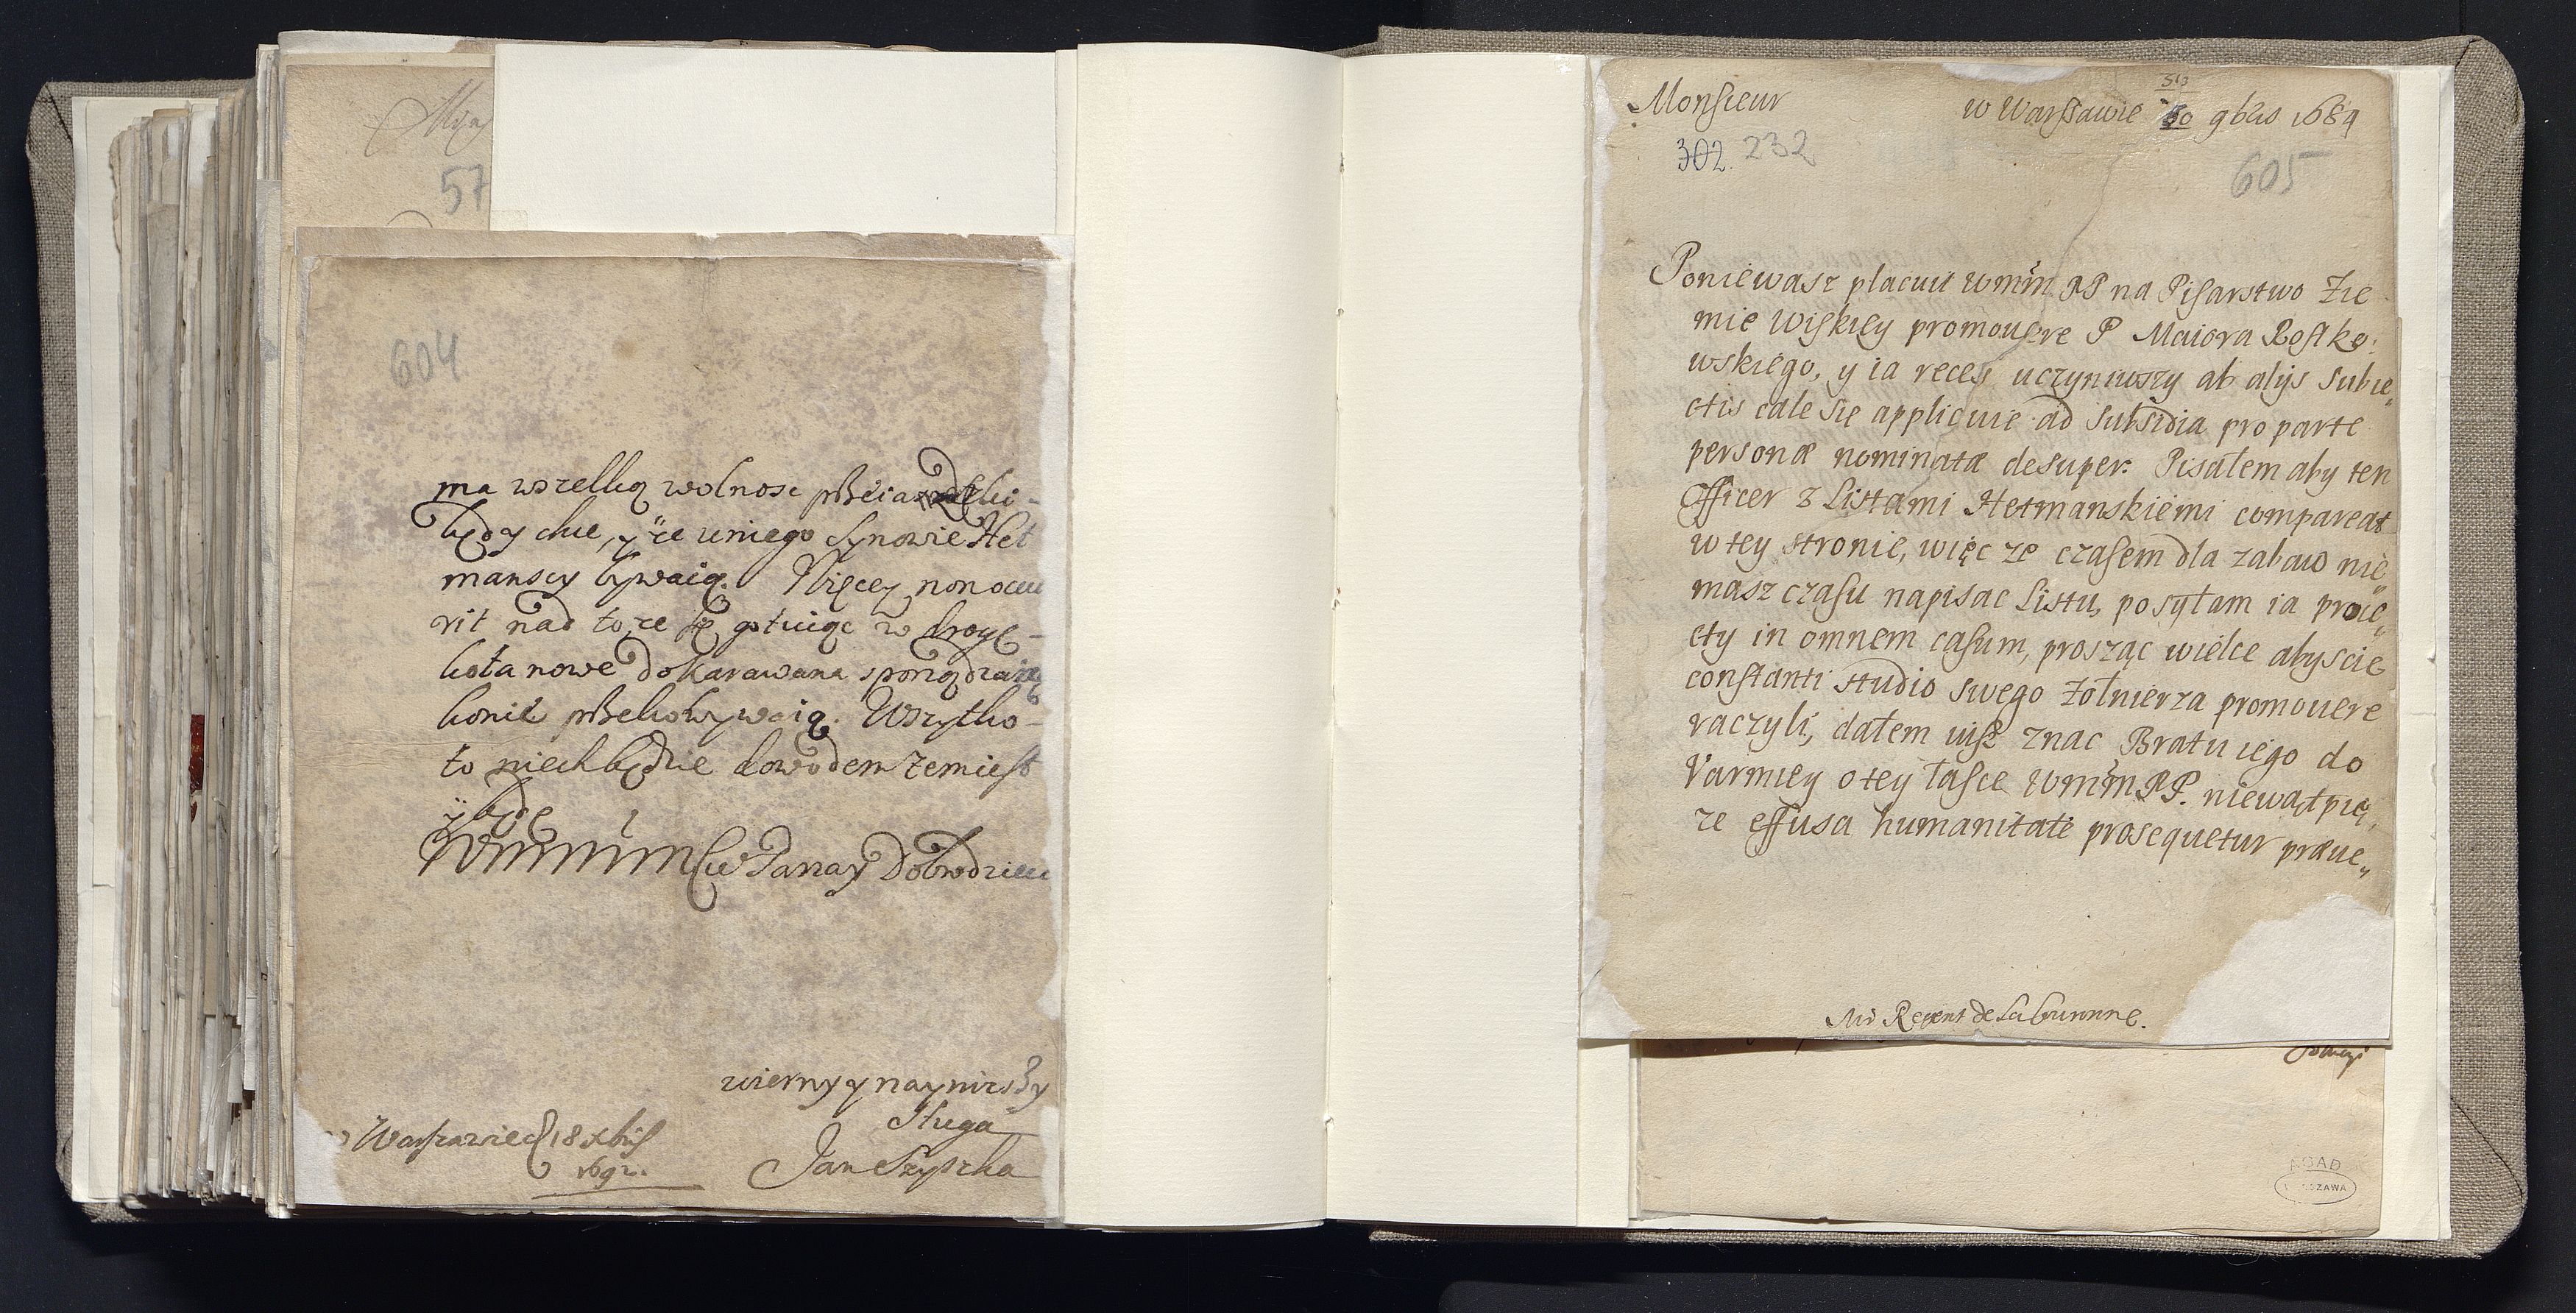 57
604
ma wszelką wolnosc
będy chce, y ze uniego Synowie Het
manscy bywaią. Więcey non occu
rit nad to, ze się gotuiąc w drogę
kota nowe do Karawana sporządzaią
konie przekowywaią. Wszytko
to niech będzie dowodem zemiest
y będę
Wmmm Pana y Dobrodzieia
wierny y nayniszy
Sługa
Jan Szyszka
w Warszawie d 18 Xbris
1692.
Monsieur
w Warszawie 30 9bris 1689
302. 232
605
Poniewasz placuit Wmm PP na Pisarstwo Zie
mie Wiskiey promovere P Maiora Rostko:
wskiego, y ia reces uczyniwszy ab alijs Subie„
ctis cale się applicuie ad Subsidia pro parte
personæ nominatæ desuper. Pisałem aby ten
Officer z Listami Hetmanskiemi compareat
w tey stronie, więc ze czasem dla zabaw nie„
masz czasu napisac Listu, posyłam ia proie„
cty in omnem casum, prosząc wielce abyscie
constanti studio swego zołnierza promovere
raczyli, dałem usz znac Bratu iego do
Varmiey o tey łasce WmmPP. niewątpię,
ze effusa humanitate prosequetur præue„
Mr Regent de la Couronne.
AGAD
WARSZAWA